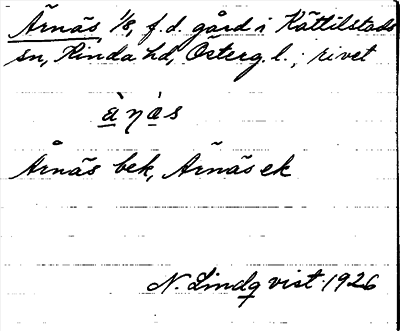 Årnäs 1/8, f.d. gård i Kättilstads
sn, Kinda hd, Österg. l.; rivet
à ŋ a s
Årnäs bek, Årnäs ek
N. Lindqvist 1926